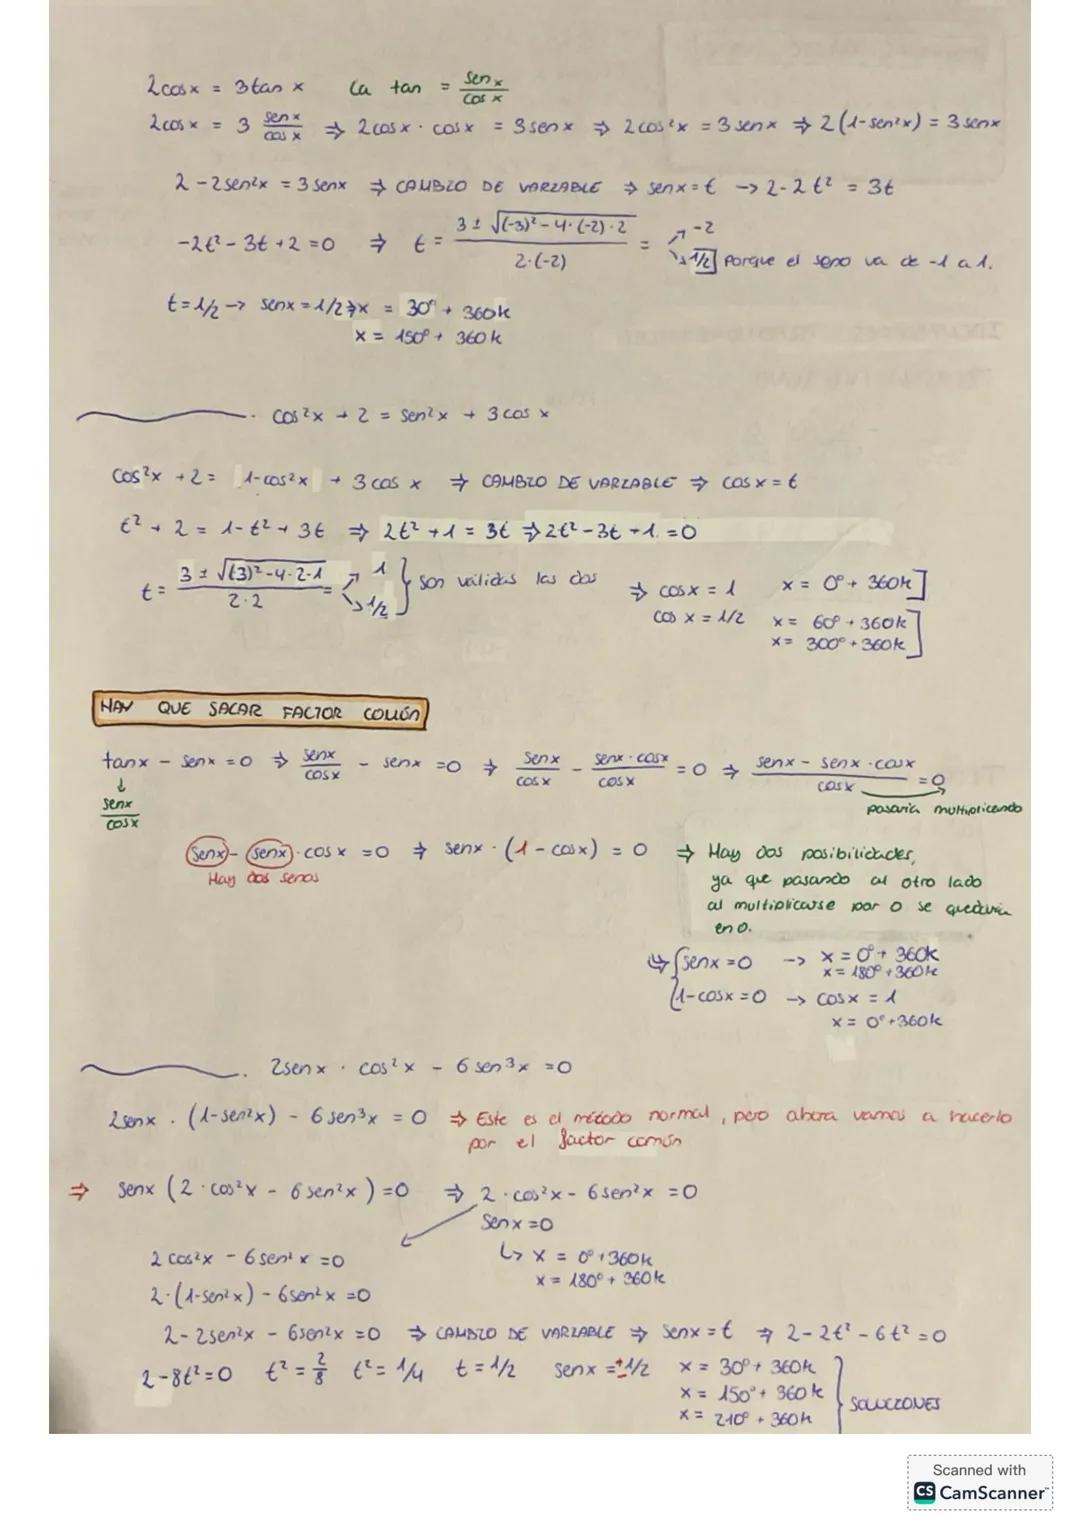 2cosx = 3tan x   La tan = senx/cos x
2cosx = 3 senx/cos x ⇒ 2cosx · cosx = 3senx ⇒ 2cos²x = 3senx ⇒ 2(1-sen²x) = 3senx
2-2sen²x = 3senx ⇒ CAMBIO DE VARIABLE ⇒ senx = t → 2-2t² = 3t
-2t² - 3t + 2 = 0 ⇒ t = 3 ± √(-3)² - 4·(-2)·2 / 2·(-2) = ↗ -2 ↘ 1/2 Porque el seno va de -1 a 1.
t = 1/2 → senx = 1/2 ⇒ x = 30° + 360k
x = 150° + 360k
cos²x + 2 = sen²x + 3cos x
cos²x + 2 = 1-cos²x + 3cos x ⇒ CAMBIO DE VARIABLE ⇒ cosx = t
t² + 2 = 1 - t² + 3t ⇒ 2t² + 1 = 3t ⇒ 2t² - 3t + 1 = 0
t = 3 ± √(3)² - 4·2·1 / 2·2 = ↗ 1 ↘ 1/2 } Son válidas las dos ⇒ cosx = 1   x = 0° + 360k ]
cos x = 1/2   x = 60° + 360k
x = 300° + 360k ]
HAY QUE SACAR FACTOR COMÚN
tanx - senx = 0 ⇒ senx/cosx - senx = 0 ⇒ senx/cosx - senx·cosx/cosx = 0 ⇒ senx - senx·cosx / cosx = 0
↓
senx/cosx
pasaría multiplicando
senx - senx · cosx = 0 ⇒ senx · (1 - cosx) = 0 ⇒ Hay dos posibilidades,
Hay dos senos
ya que pasando al otro lado
al multiplicarse por 0 se quedaría
en 0.
↳ { senx = 0 → x = 0° + 360k
x = 180° + 360k
1-cosx = 0 → cosx = 1
x = 0° + 360k
2senx · cos²x - 6sen³x = 0
2senx · (1-sen²x) - 6sen³x = 0 ⇒ Este es el método normal, pero ahora vamos a hacerlo
por el factor común
⇒ senx (2·cos²x - 6sen²x) = 0 ⇒ 2·cos²x - 6sen²x = 0
senx = 0
2cos²x - 6sen²x = 0   ↳ x = 0° + 360k
x = 180° + 360k
2·(1-sen²x) - 6sen²x = 0
2-2sen²x - 6sen²x = 0 ⇒ CAMBIO DE VARIABLE ⇒ senx = t ⇒ 2-2t² - 6t² = 0
2-8t² = 0   t² = 2/8   t² = 1/4   t = 1/2   senx = ±1/2   x = 30° + 360k
x = 150° + 360k } SOLUCIONES
x = 210° + 360k
Scanned with
CS CamScanner™